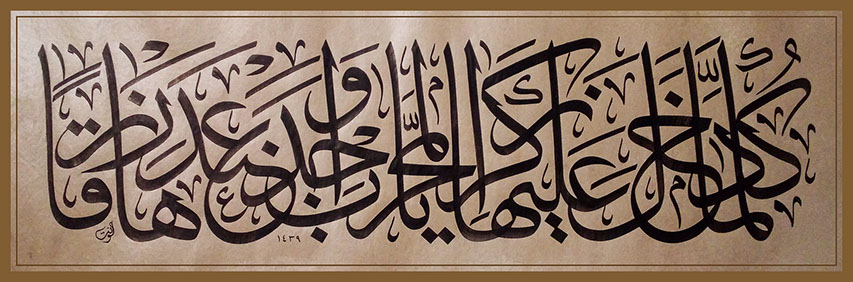 كلما دخل عليها زكريا المحراب وجد عندها رزقا
١٤٣٩